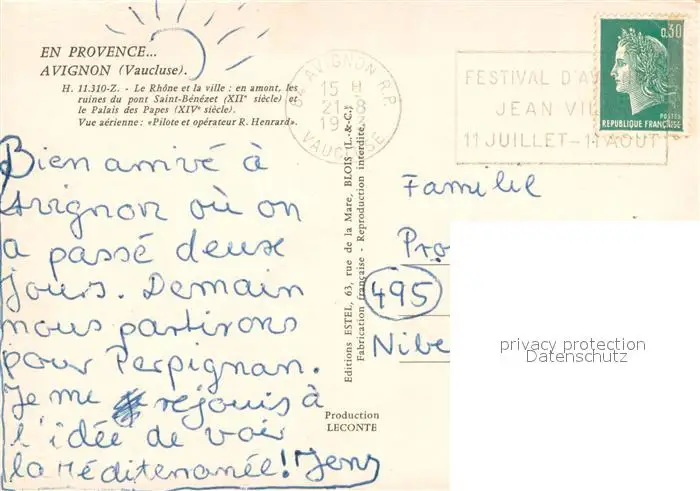 EN PROVENCE...
AVIGNON (Vaucluse).
H. 11.310-Z. - Le Rhône et la ville : en amont, les
ruines du pont Saint-Bénézet (XIIe siècle) et
le Palais des Papes (XIVe siècle).
Vue aérienne: «Pilote et opérateur R. Henrard».
Bien arrivé à
Avignon où on
a passé deuxe
jours. Demain
nous partirons
pour Perpignan.
Je me rejouis à
l'idée de voir
la Méditenanée! Jens
Editions ESTEL, 63, rue de la Mare, BLOIS (L.-&-C.)
Fabrication française - Reproduction interdite.
Production
LECONTE
AVIGNON R.P.
15 H
21-8
19
VAUCLUSE
FESTIVAL D'AV
JEAN VIL
11 JUILLET-11 AOUT
0,30
POSTES
REPUBLIQUE FRANÇAISE
Familie
Pro
495
Nibe
privacy protection
Datenschutz